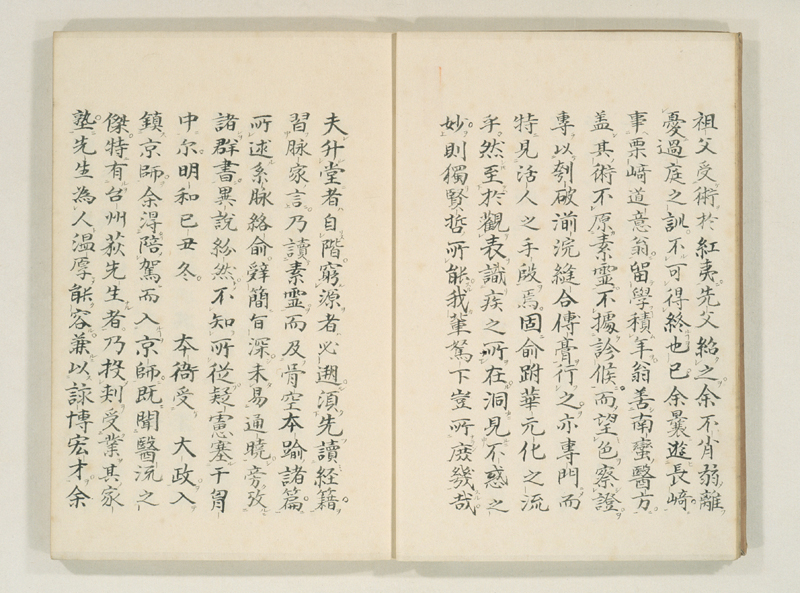 祖父受術於紅夷先父紹之余不肖弱離
憂過庭之訓不可得終也已余曩遊長﨑
事栗﨑道意翁留學積年翁善南蠻醫方
盖其術不原素霊不據診候而望色察證
專以刳破湔浣縫合傅膏行之亦專門而
特見活人之手段焉固俞跗華元化之流
乎然至於觀表識疾之所在洞見不惑之
妙則獨賢哲所能我輩駑下豈所庶幾哉
夫升堂者自階窮源者必遡湏先讀経籍
習脉家言乃讀素霊而及骨空本踰諸篇
所逑系脉絡俞髎簡旨深未易通曉旁攷
諸群書異說紛然不知所從疑悥塞于胷
中尓明和己丑冬 本衙受 大政入
鎮京師余得陪駕而入京師既聞醫流之
傑特有台州荻先生者乃投刺受業其家
塾先生為人温厚能容兼以諒博宏才余